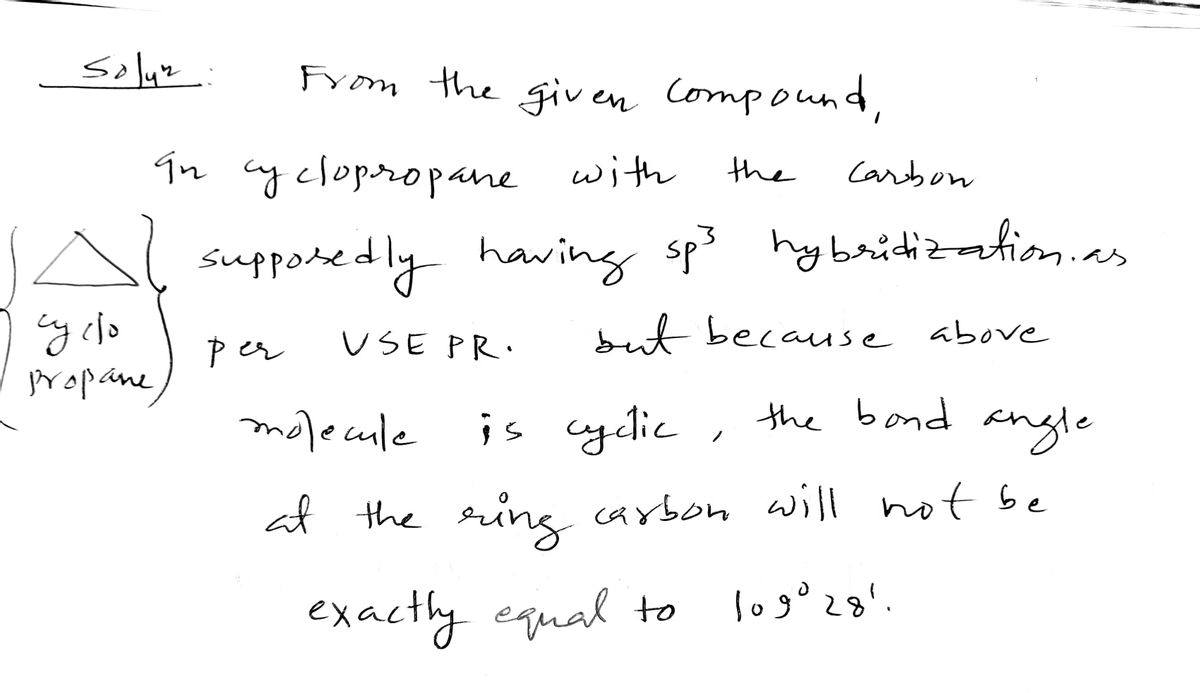 Soluⁿ:
From the given compound,
In cyclopropane with the carbon
supposedly having sp³ hybridization. as
cyclo
propane
per VSEPR. but because above
molecule is cyclic, the bond angle
at the ring carbon will not be
exactly equal to 109°28'.